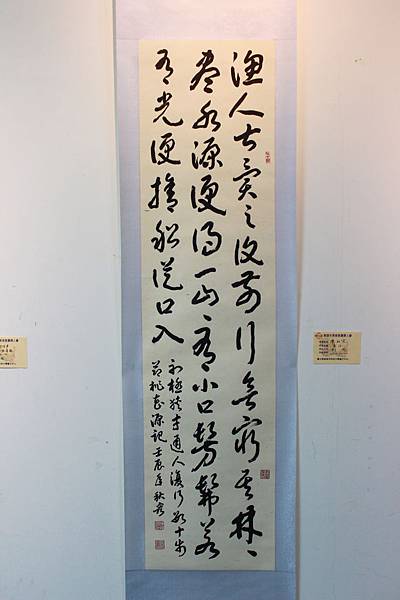 漁人甚異之復前行欲窮其林〻
盡水源便得一山〻有小口髣髴若
有光便捨船從口入
初極狹才通人復行數十步
節桃花源記 壬辰年 秋